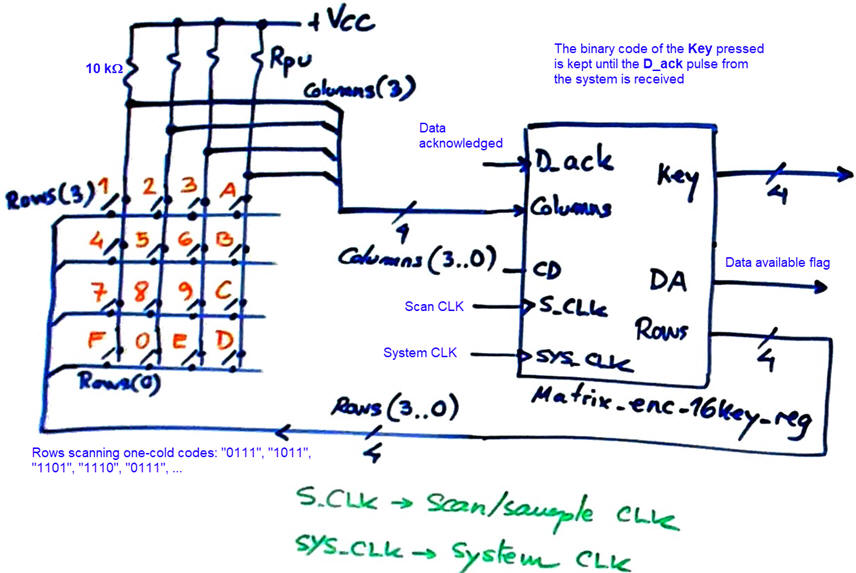 + Vcc
10 kΩ
Rpu
Columns(3)
The binary code of the Key pressed
is kept until the D_ack pulse from
the system is received
Data
acknowledged
D_ack
Key
4
Rows(3)
1 2 3 A
4 5 6 B
7 8 9 C
F 0 E D
Rows(0)
Columns
4
Columns (3..0)
CD
DA
Data available flag
Scan CLK
S_CLK
Rows
4
System CLK
SYS_CLK
Matrix_enc_16key_reg
Rows (3..0)
4
Rows scanning one-cold codes: "0111", "1011",
"1101", "1110", "0111", ...
S_CLK → Scan/sample CLK
SYS_CLK → System CLK